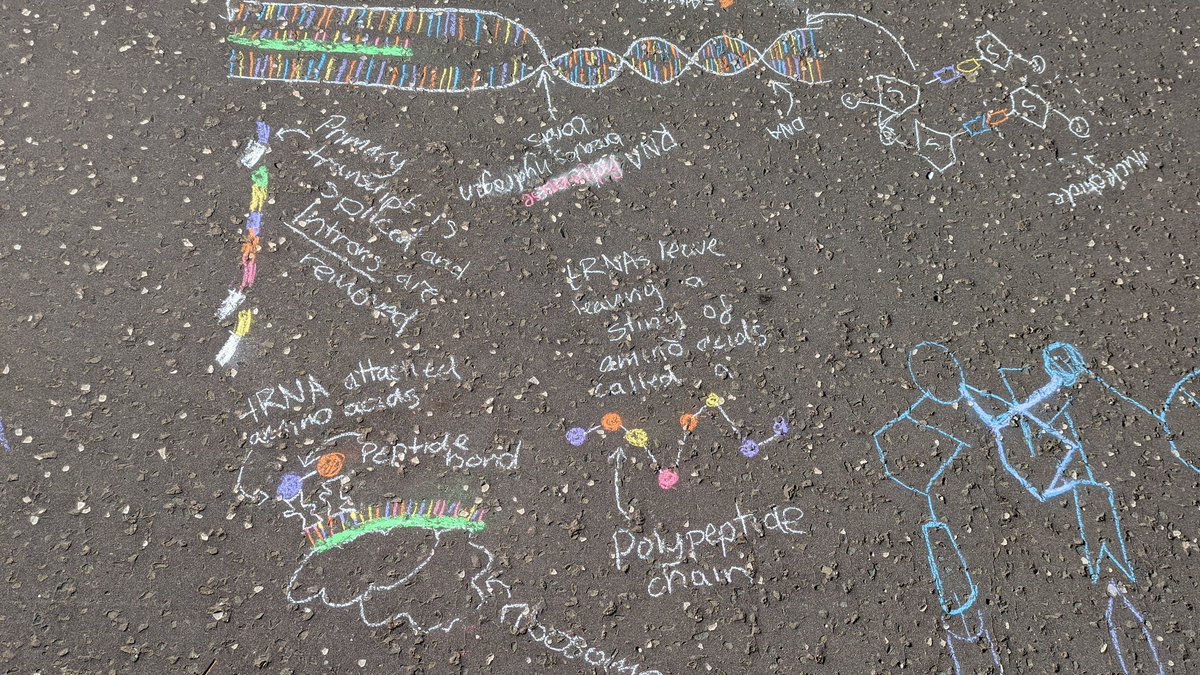 DNA
RNA
breaks hydrogen
bonds
Primary
transcript is
spliced and
Introns are
removed
tRNAs leave
leaving a
string of
amino acids
called a
tRNA attached
amino acids
Peptide
bond
Polypeptide
chain